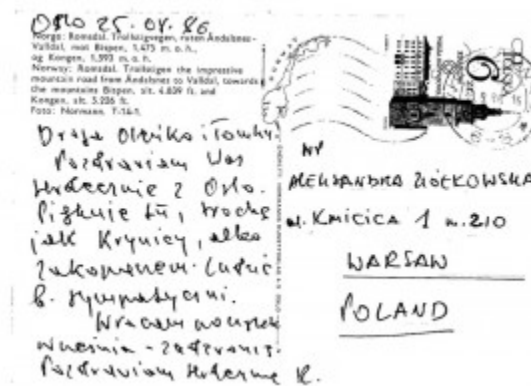 OSLO 25.08.86.
Norge: Romsdal. Trollstigvegen, ruten Åndalsnes-
Valldal, mot Bispen, 1,475 m.o.h.,
og Kongen, 1,593 m.o.h.
Norway: Romsdal. Trollstigen the impressive
mountain road from Åndalsnes to Valldal, towards
the mountains Bispen, alt. 4.839 ft. and
Kongen, alt. 5.226 ft.
Foto: Normann, 7-16-1
Droga Oleńko i Tomku.
Pozdrawiam Was
serdecznie z Oslo.
Pięknie tu, trochę
jak Krynicy, albo
Zakopanem. Ludzie
b. sympatyczni.
Wracam
września - zadzwonię.
Pozdrawiam serdecznie
WP
ALEKSANDRA ZIÓŁKOWSKA
ul. KMICICA 1 m. 210
WARSAW
POLAND
NORWAY